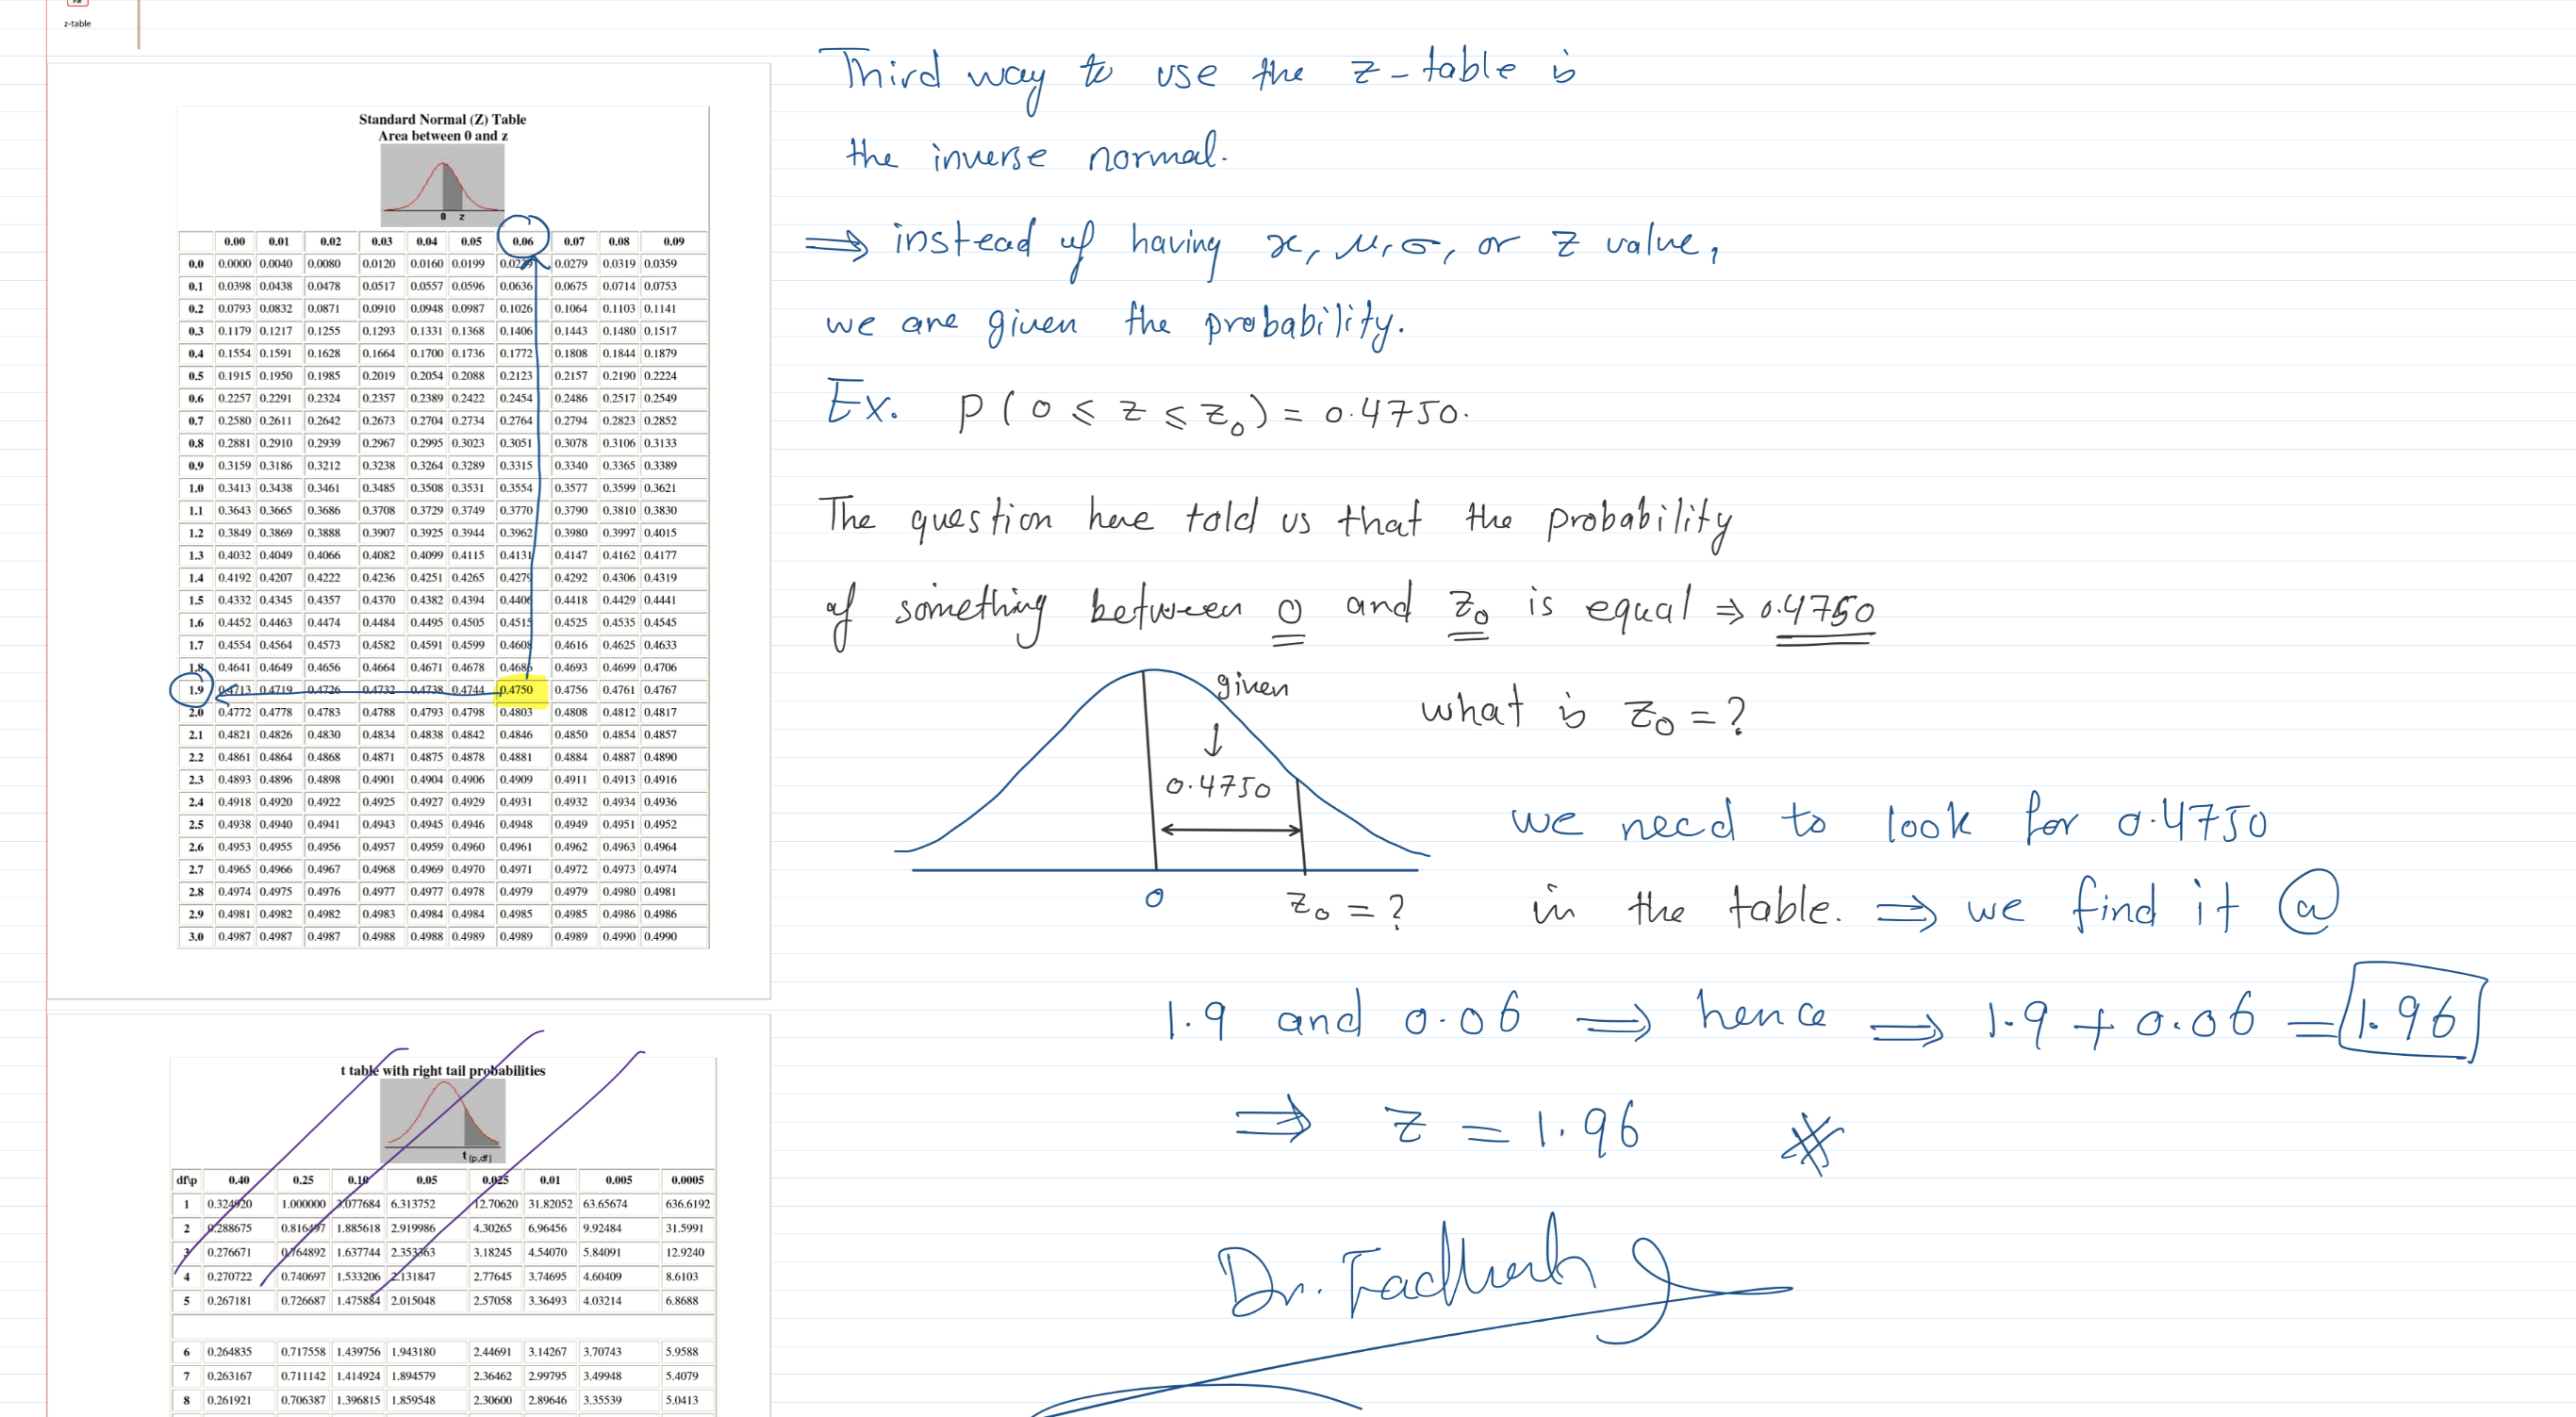 z-table
Standard Normal (Z) Table
Area between 0 and z
0 z
0.00 0.01 0.02 0.03 0.04 0.05 0.06 0.07 0.08 0.09
0.0 0.0000 0.0040 0.0080 0.0120 0.0160 0.0199 0.0239 0.0279 0.0319 0.0359
0.1 0.0398 0.0438 0.0478 0.0517 0.0557 0.0596 0.0636 0.0675 0.0714 0.0753
0.2 0.0793 0.0832 0.0871 0.0910 0.0948 0.0987 0.1026 0.1064 0.1103 0.1141
0.3 0.1179 0.1217 0.1255 0.1293 0.1331 0.1368 0.1406 0.1443 0.1480 0.1517
0.4 0.1554 0.1591 0.1628 0.1664 0.1700 0.1736 0.1772 0.1808 0.1844 0.1879
0.5 0.1915 0.1950 0.1985 0.2019 0.2054 0.2088 0.2123 0.2157 0.2190 0.2224
0.6 0.2257 0.2291 0.2324 0.2357 0.2389 0.2422 0.2454 0.2486 0.2517 0.2549
0.7 0.2580 0.2611 0.2642 0.2673 0.2704 0.2734 0.2764 0.2794 0.2823 0.2852
0.8 0.2881 0.2910 0.2939 0.2967 0.2995 0.3023 0.3051 0.3078 0.3106 0.3133
0.9 0.3159 0.3186 0.3212 0.3238 0.3264 0.3289 0.3315 0.3340 0.3365 0.3389
1.0 0.3413 0.3438 0.3461 0.3485 0.3508 0.3531 0.3554 0.3577 0.3599 0.3621
1.1 0.3643 0.3665 0.3686 0.3708 0.3729 0.3749 0.3770 0.3790 0.3810 0.3830
1.2 0.3849 0.3869 0.3888 0.3907 0.3925 0.3944 0.3962 0.3980 0.3997 0.4015
1.3 0.4032 0.4049 0.4066 0.4082 0.4099 0.4115 0.4131 0.4147 0.4162 0.4177
1.4 0.4192 0.4207 0.4222 0.4236 0.4251 0.4265 0.4279 0.4292 0.4306 0.4319
1.5 0.4332 0.4345 0.4357 0.4370 0.4382 0.4394 0.4406 0.4418 0.4429 0.4441
1.6 0.4452 0.4463 0.4474 0.4484 0.4495 0.4505 0.4515 0.4525 0.4535 0.4545
1.7 0.4554 0.4564 0.4573 0.4582 0.4591 0.4599 0.4608 0.4616 0.4625 0.4633
1.8 0.4641 0.4649 0.4656 0.4664 0.4671 0.4678 0.4686 0.4693 0.4699 0.4706
1.9 0.4713 0.4719 0.4726 0.4732 0.4738 0.4744 0.4750 0.4756 0.4761 0.4767
2.0 0.4772 0.4778 0.4783 0.4788 0.4793 0.4798 0.4803 0.4808 0.4812 0.4817
2.1 0.4821 0.4826 0.4830 0.4834 0.4838 0.4842 0.4846 0.4850 0.4854 0.4857
2.2 0.4861 0.4864 0.4868 0.4871 0.4875 0.4878 0.4881 0.4884 0.4887 0.4890
2.3 0.4893 0.4896 0.4898 0.4901 0.4904 0.4906 0.4909 0.4911 0.4913 0.4916
2.4 0.4918 0.4920 0.4922 0.4925 0.4927 0.4929 0.4931 0.4932 0.4934 0.4936
2.5 0.4938 0.4940 0.4941 0.4943 0.4945 0.4946 0.4948 0.4949 0.4951 0.4952
2.6 0.4953 0.4955 0.4956 0.4957 0.4959 0.4960 0.4961 0.4962 0.4963 0.4964
2.7 0.4965 0.4966 0.4967 0.4968 0.4969 0.4970 0.4971 0.4972 0.4973 0.4974
2.8 0.4974 0.4975 0.4976 0.4977 0.4977 0.4978 0.4979 0.4979 0.4980 0.4981
2.9 0.4981 0.4982 0.4982 0.4983 0.4984 0.4984 0.4985 0.4985 0.4986 0.4986
3.0 0.4987 0.4987 0.4987 0.4988 0.4988 0.4989 0.4989 0.4989 0.4990 0.4990
t table with right tail probabilities
t (p,df)
df\p 0.40 0.25 0.10 0.05 0.025 0.01 0.005 0.0005
1 0.324920 1.000000 3.077684 6.313752 12.70620 31.82052 63.65674 636.6192
2 0.288675 0.816497 1.885618 2.919986 4.30265 6.96456 9.92484 31.5991
3 0.276671 0.764892 1.637744 2.353363 3.18245 4.54070 5.84091 12.9240
4 0.270722 0.740697 1.533206 2.131847 2.77645 3.74695 4.60409 8.6103
5 0.267181 0.726687 1.475884 2.015048 2.57058 3.36493 4.03214 6.8688
6 0.264835 0.717558 1.439756 1.943180 2.44691 3.14267 3.70743 5.9588
7 0.263167 0.711142 1.414924 1.894579 2.36462 2.99795 3.49948 5.4079
8 0.261921 0.706387 1.396815 1.859548 2.30600 2.89646 3.35539 5.0413
Third way to use the z-table is
the inverse normal.
⇒ instead of having x, μ, σ, or z value,
we are given the probability.
Ex. P(0 ≤ z ≤ z₀) = 0.4750.
The question here told us that the probability
of something between 0 and z₀ is equal ⇒ 0.4750
given
what is z₀ = ?
0.4750
we need to look for 0.4750
0 z₀ = ?
in the table. ⇒ we find it @
1.9 and 0.06 ⇒ hence ⇒ 1.9 + 0.06 = 1.96
⇒ z = 1.96 #
Dr.